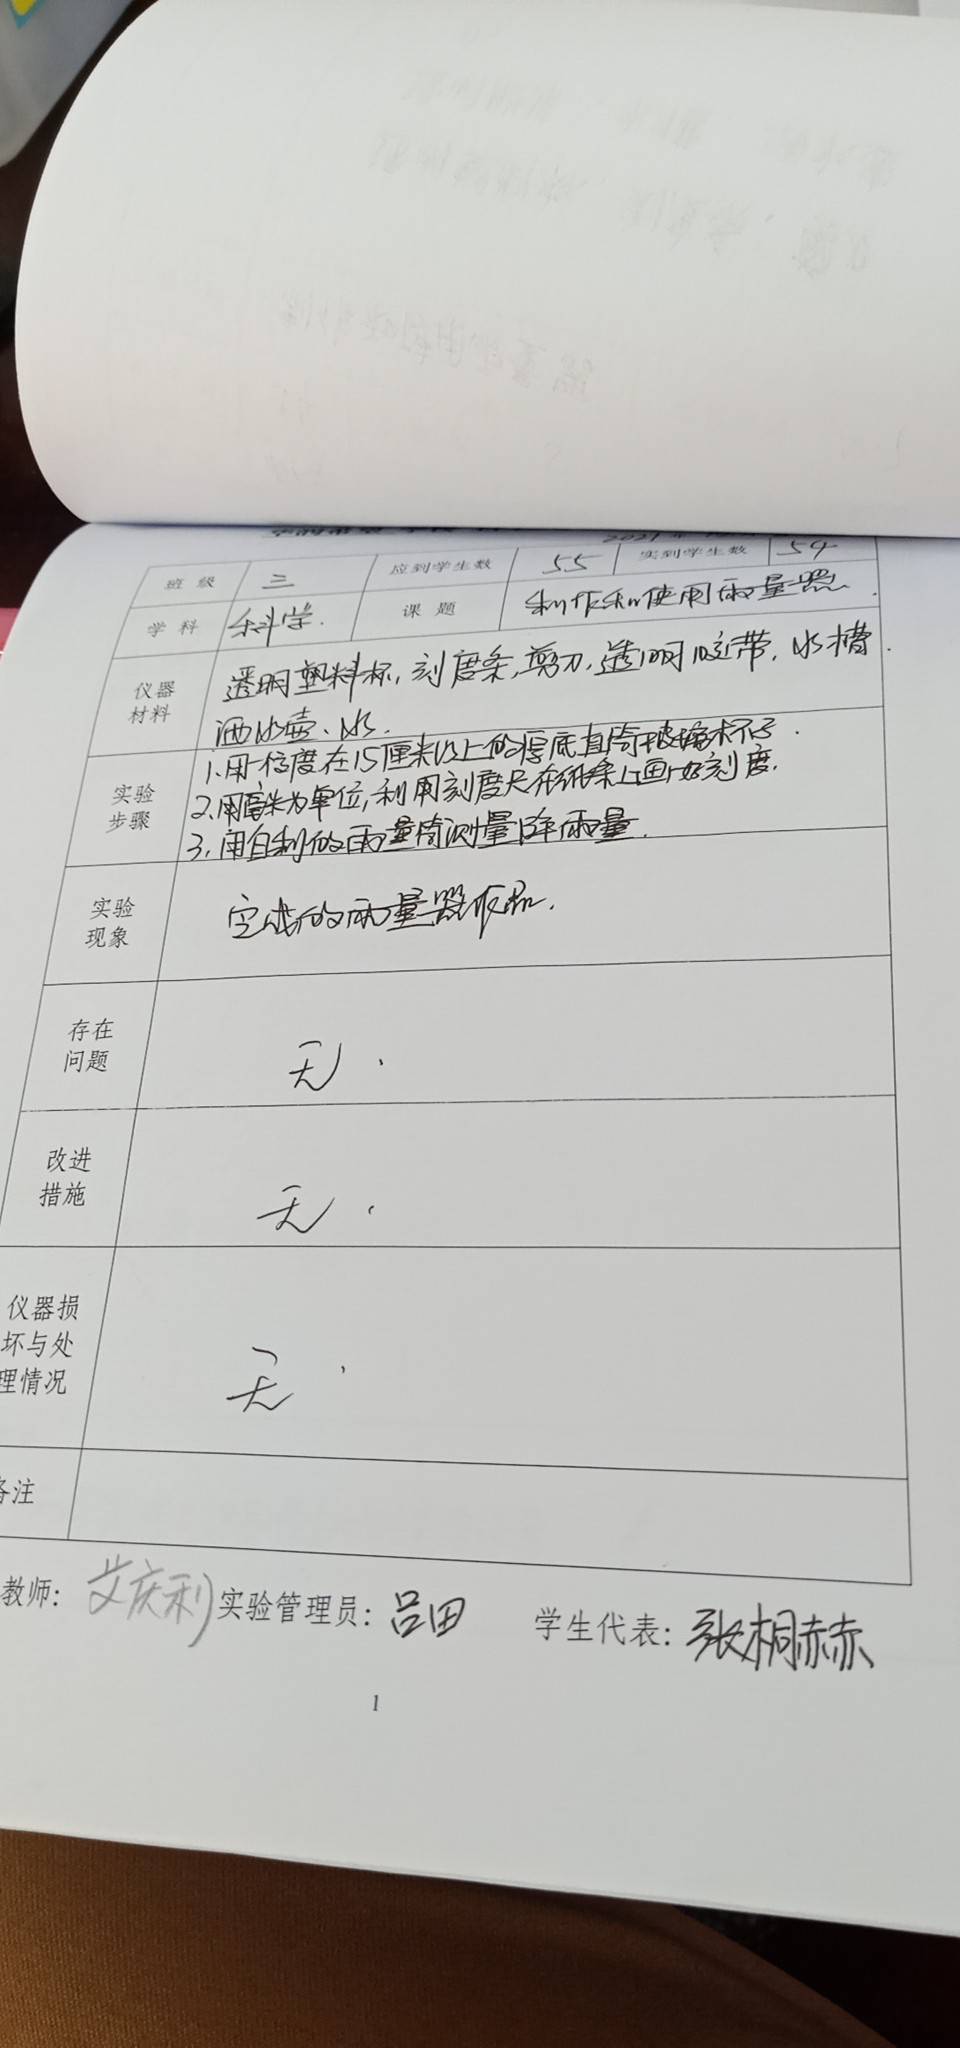 2021年
班 级 三 应到学生数 55 实到学生数 54
学 科 科学. 课 题 制作和使用雨量器.
仪器
材料
透明塑料杯,刻度条,剪刀,透明胶带,水槽
洒水壶、水.
实验
步骤
1.用一个高度在15厘米以上的厚底直筒玻璃杯子.
2.用毫米为单位,利用刻度尺在纸条上画好刻度.
3.用自制的雨量筒测量降雨量.
实验
现象
完成的雨量器作品.
存在
问题
无.
改进
措施
无.
仪器损
坏与处
理情况
无.
备注
教师: 艾庆利 实验管理员: 吕田 学生代表: 张桐赫
1